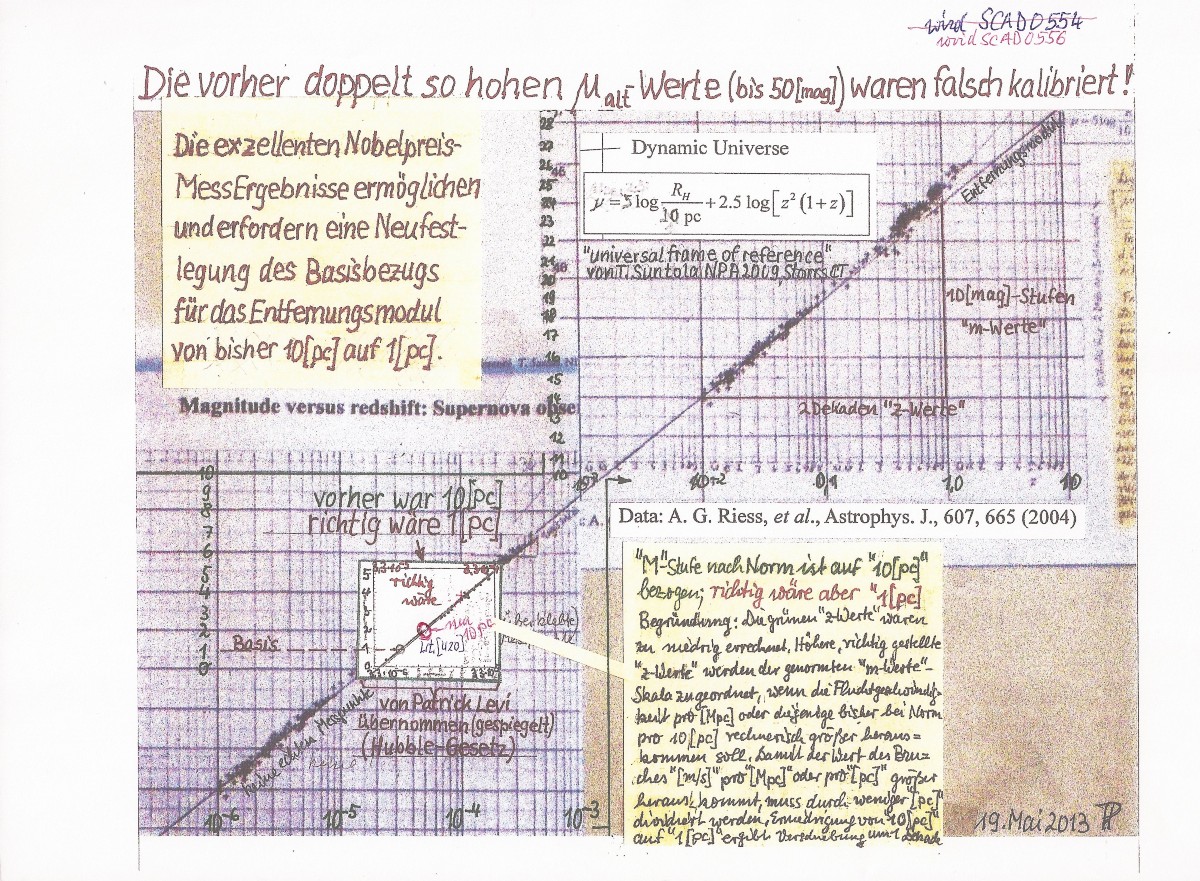 wird SCAD0554
wird SCAD0556
Die vorher doppelt so hohen µalt-Werte (bis 50[mag]) waren falsch kalibriert!
Die exzellenten Nobelpreis-
MessErgebnisse ermöglichen
und erfordern eine Neufest-
legung des Basisbezugs
für das Entfernungsmodul
von bisher 10[pc] auf 1[pc].
Magnitude versus redshift: Supernova obse
Dynamic Universe
µ = 5 log R_H / 10 pc + 2.5 log [z² (1+z)]
"universal frame of reference"
von T. Suntola NPA 2009, Storrs CT
Entfernungsmodul
10[mag]-Stufen
"m-Werte"
2 Dekaden "z-Werte"
28
27
26
25
24
23
22
21
20
19
18
17
16
15
14
13
12
11
10
10-2
0,1
1,0
10
Data: A. G. Riess, et al., Astrophys. J., 607, 665 (2004)
10
9
8
7
6
5
4
3
2
1
0
vorher war 10[pc]
richtig wäre 1[pc]
5
4
3
2
1
0
richtig
wäre
nur
10 pc
Lit.[420]
Basis
keine echten Messpunkte
von Patrick Levi
übernommen (gespiegelt)
(Hubble-Gesetz)
10-6
10-5
10-4
10-3
"M"-Stufe nach Norm ist auf "10[pc]"
bezogen; richtig wäre aber "1[pc]
Begründung: Die grünen "z-Werte" waren
zu niedrig errechnet. Höhere, richtig gestellte
"z-Werte" werden der genormten "m-Werte"-
Skala zugeordnet, wenn die Fluchtgeschwindig-
keit pro [Mpc] oder diejenige bisher bei Norm
pro 10[pc] rechnerisch größer heraus=
kommen soll. Damit der Wert des Bru=
ches "[m/s]" pro "[Mpc]" oder pro "[pc]" größer
heraus kommt, muss durch weniger "[pc]"
dividiert werden, Erniedrigung von "10[pc]"
auf "1[pc]" ergibt Verschiebung um 1 Dekade
19. Mai 2013